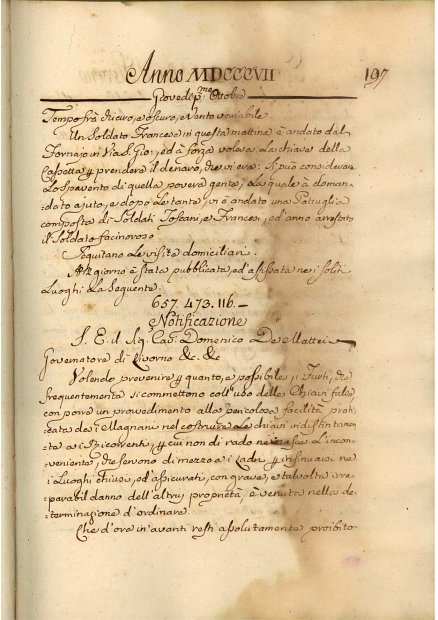 Anno MDCCCVII
197
Giovedì pmo Ottobre
Tempo frà chiaro, e oscuro, e Vento variabile
Un Soldato Francese in questa mattina è andato dal
Fornajo in Via S. Gio: ed à forza voleva la chiave della
Casetta p prendere il denaro, che vi era: Si può considerare
lo spavento di quella povera gente, la quale à doman-
dato ajuto, e dopo le tante, vi è andato una Pattuglia
composta di Soldati Toscani, e Francesi, ed'anno arrestato
il Soldato facinoroso
Seguitano le visite domiciliari.
giorno è stata pubblicata, ed'afissata ne i soliti
Luoghi la Seguente
657. 473. 116.
Notificazione
S. E. il Sig. Cav. Domenico De Mattei
Governatore di Livorno &c. &c.
Volendo prevenire p quanto, e possibile i Furti, che
frequentemente si commettono coll'uso delle Chiavi false,
con porre un provedimento alla pericolosa facilità prati-
cata da i Magnani nel costruire le chiavi indistintamen-
te a i Ricorrenti, p cui non di rado ne nasce l'incon-
veniente, che servono di mezzo a i Ladri p insinuarsi ne
i Luoghi chiusi, ed'assicurati, con grave, e talvolta irre-
parabil danno dell'altrui proprietà, è venuta nella de-
terminazione d'ordinare.
Che d'ora in'avanti resti assolutamente proibito